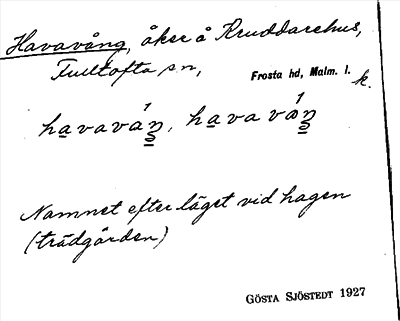 Havavång, åker å Kruddarehus,
Fulltofta sn,
Frosta hd, Malm. l.
k.
Namnet efter läget vid hagen
(trädgården)
GÖSTA SJÖSTEDT 1927